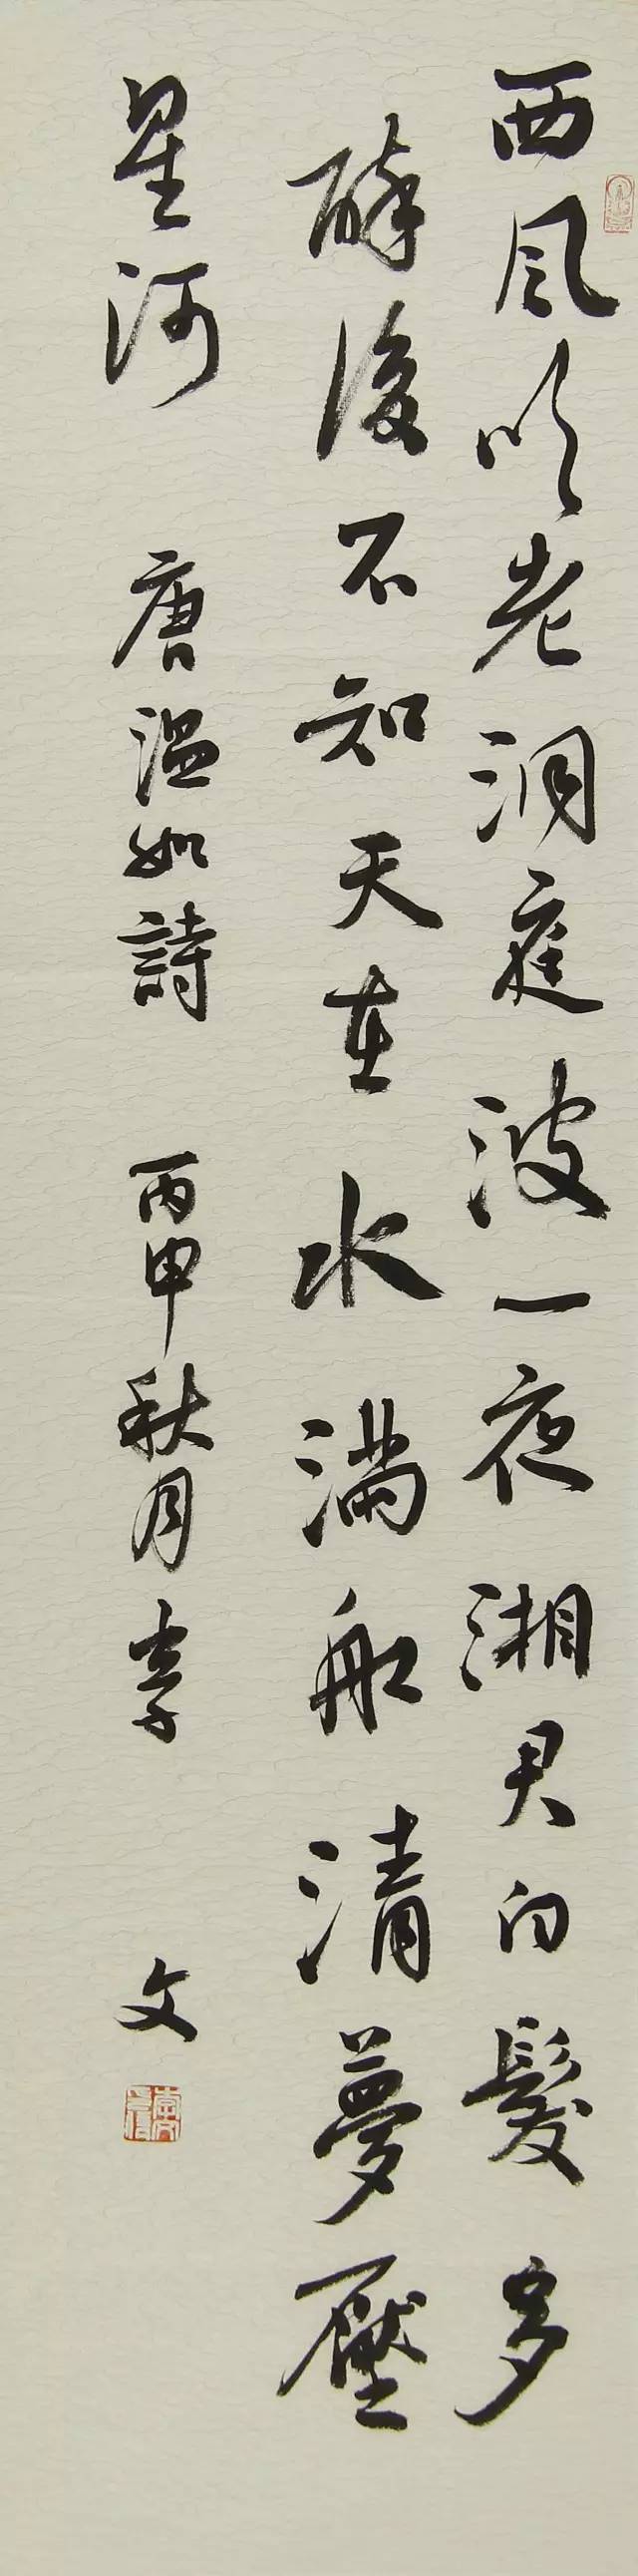 西風吹老洞庭波一夜湘君白髮多
醉後不知天在水滿船清夢壓
星河 唐溫如詩 丙申秋月李 文